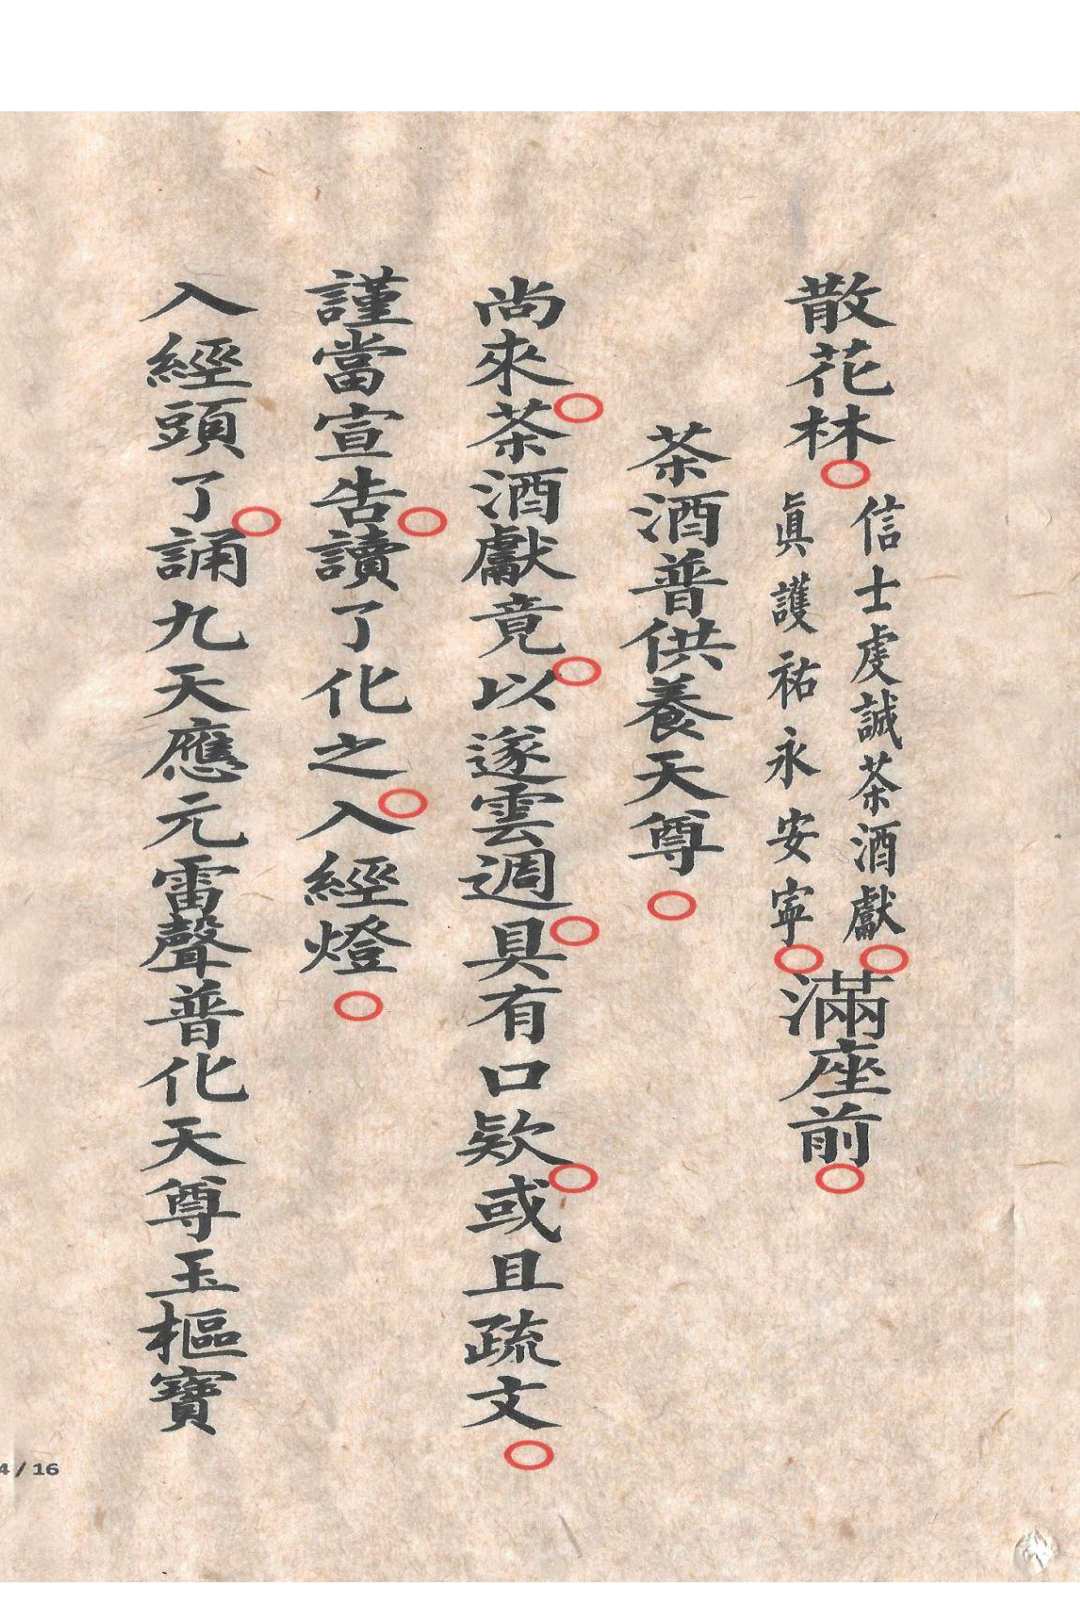 散花林○信士虔誠茶酒獻○眞護祐永安寕○滿座前○
茶酒普供養天尊○
尚來○茶酒獻竟○以遂雲週○具有口欵○或且疏文○
謹當宣告○讀了化之○入經燈○
入經頭了○誦九天應元雷聲普化天尊玉樞寶
4 / 16